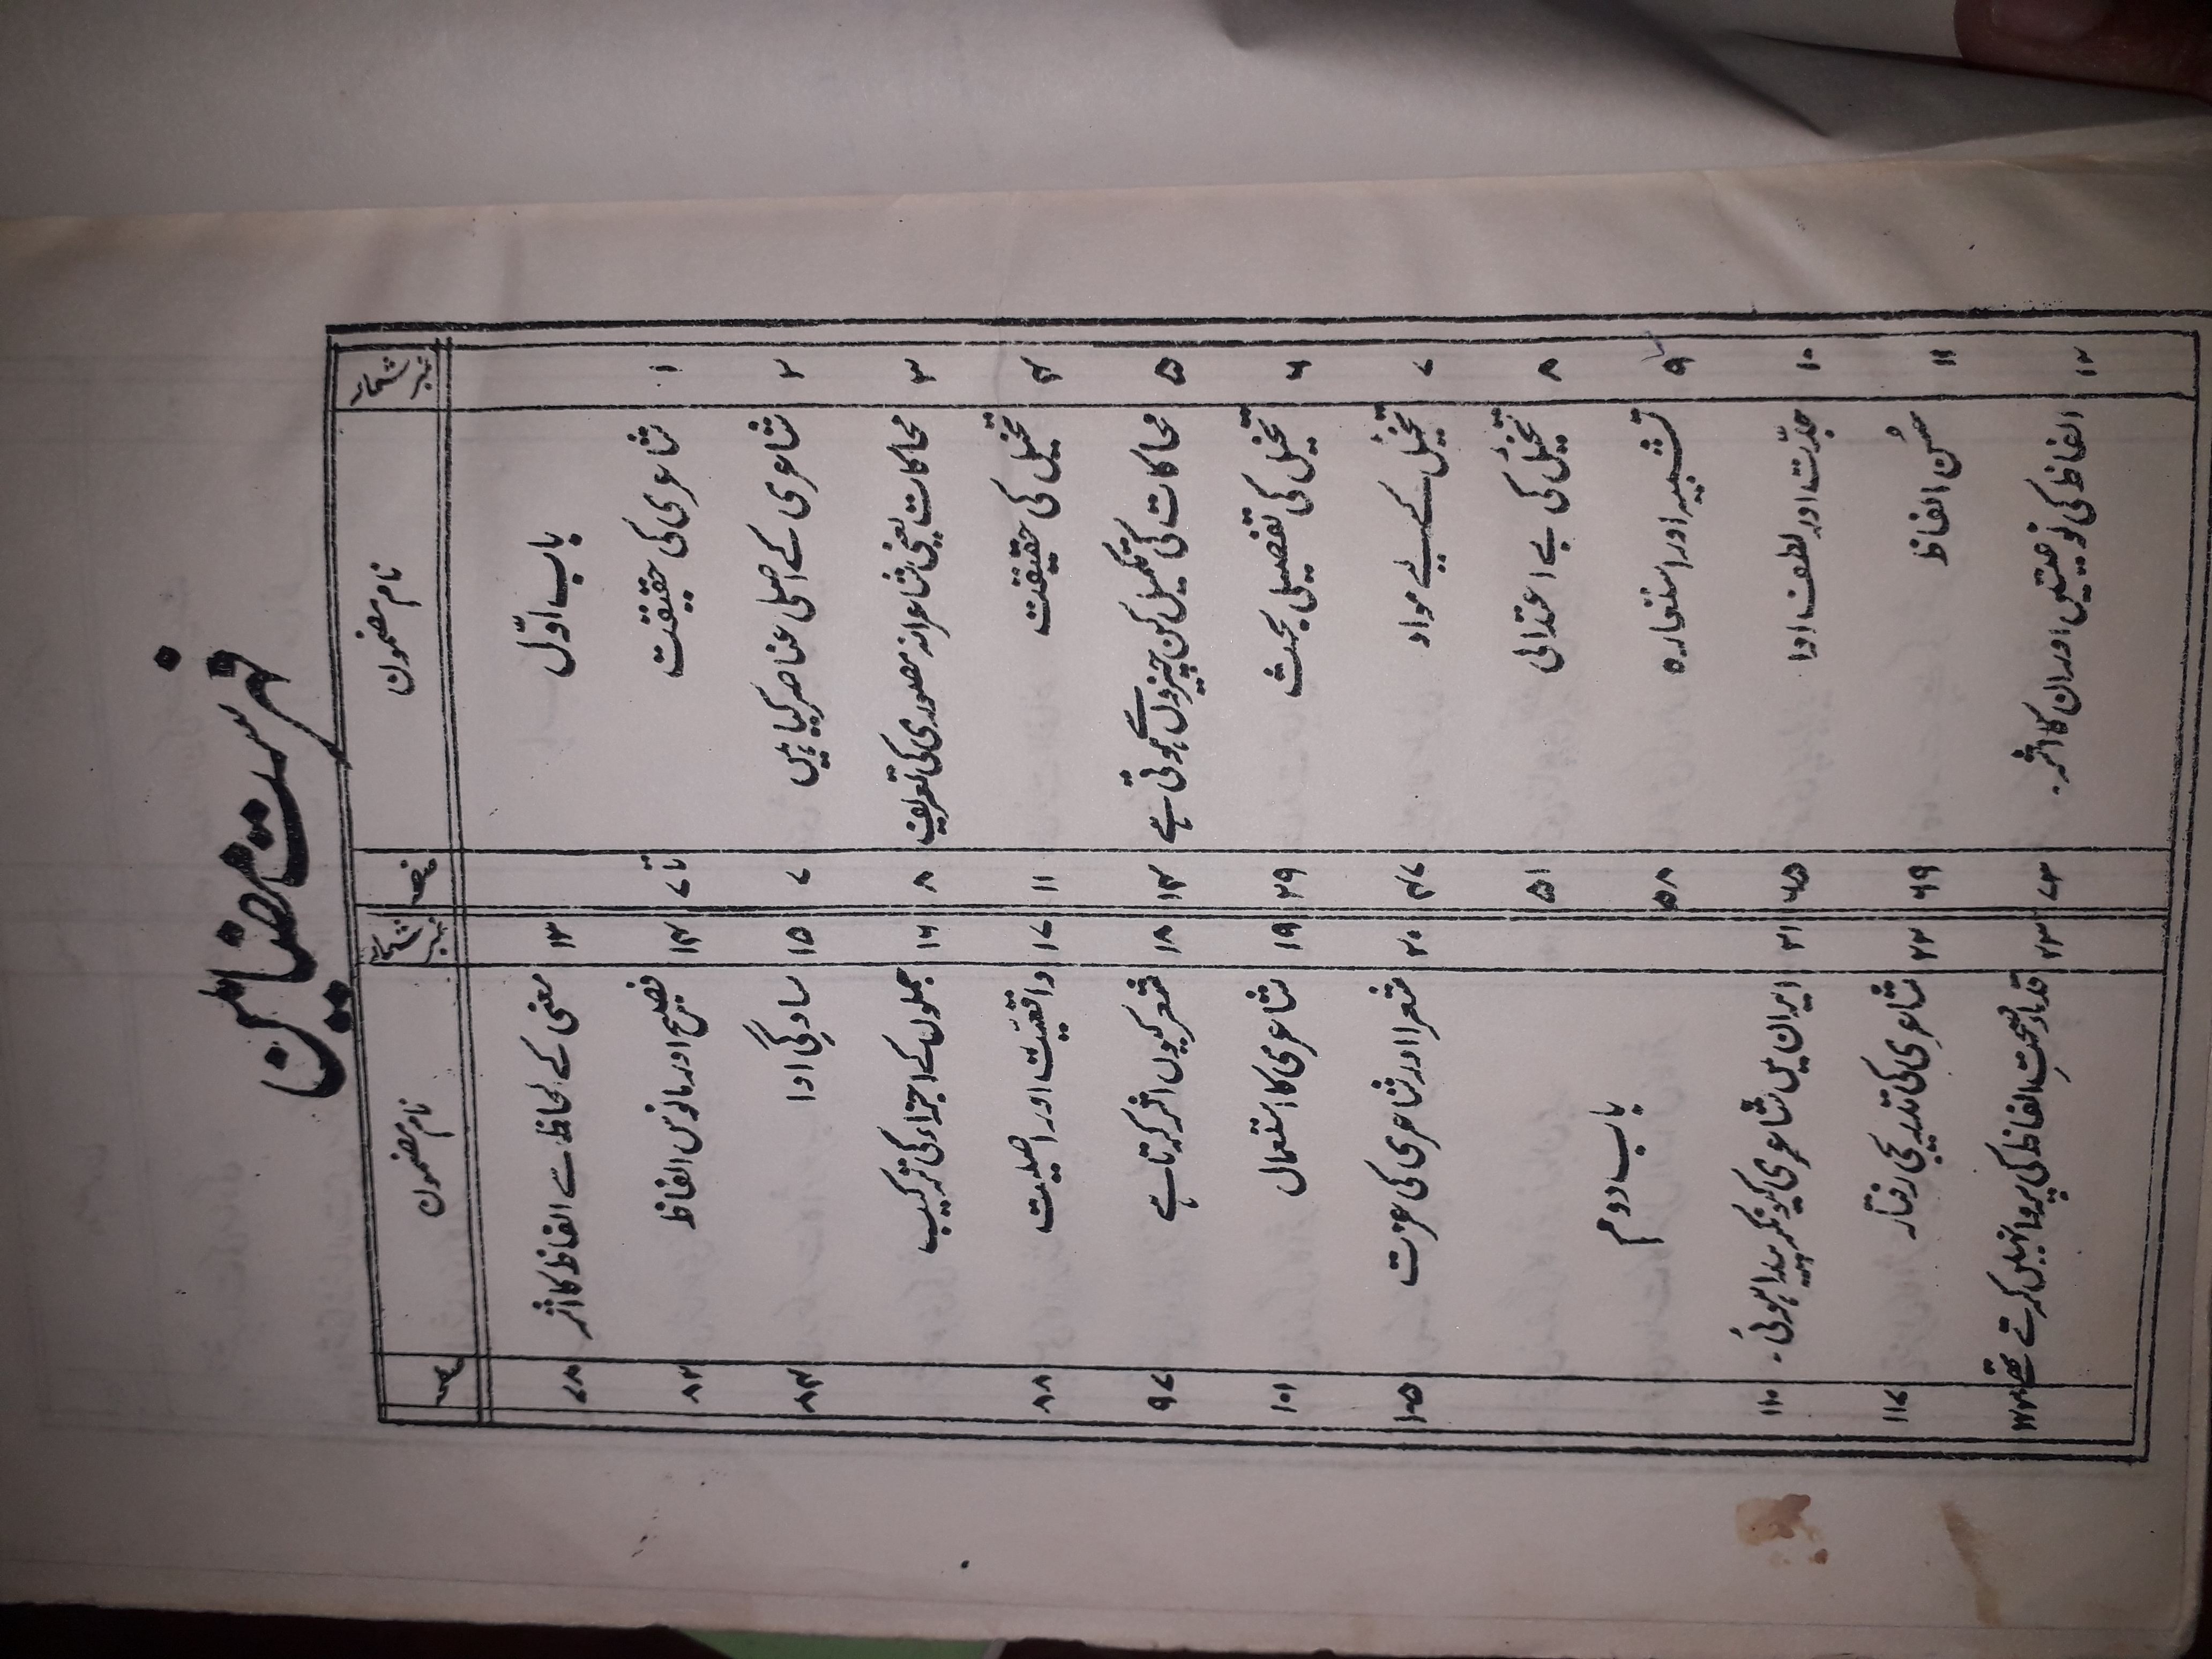 فہرست مضامین
نمبر شمار نام مضمون صفحہ نمبر شمار نام مضمون صفحہ
باب اوّل ۱۳ معنی کے لحاظ سے الفاظ کا اثر ۷۸
۱ شاعری کی حقیقت ۱ تا ۷ ۱۴ فصیح اور مانوس الفاظ ۸۲
۲ شاعری کے اصلی عناصر کیا ہیں ۷ ۱۵ سادگی ادا ۸۴
۳ محاکات یعنی شاعرانہ مصوری کی تعریف ۸ ۱۶ جملوں کے اجزاء کی ترکیب
۴ تخیل کی حقیقت ۱۱ ۱۷ واقعیّت اور اصلیت ۸۸
۵ محاکات کی تکمیل کن چیزوں سے ہوتی ہے ۱۴ ۱۸ شعر کیوں اثر کرتا ہے ۹۷
۶ تخیل کی تفصیلی بحث ۲۹ ۱۹ شاعری کا استعمال ۱۰۱
۷ تخیُل کے لیے مواد ۴۷ ۲۰ شعرا اور شاعری کی عزت ۱۰۵
۸ تخیُل کی بے اعتدالی ۵۱
۹ تشبیہ اور استعارہ ۵۸ باب دوم
۱۰ جدّت اور لطف ادا ۶۵ ۲۱ ایران میں شاعری کیونکر پیدا ہوئی۔ ۱۱۰
۱۱ حُسن الفاظ ۶۹ ۲۲ شاعری کی تدریجی رفتار ۱۱۷
۱۲ الفاظ کی نوعیتیں اور ان کا اثر۔ ۷۳ ۲۳ قدماء صحتِ الفاظ کی پروا نہیں کرتے تھے